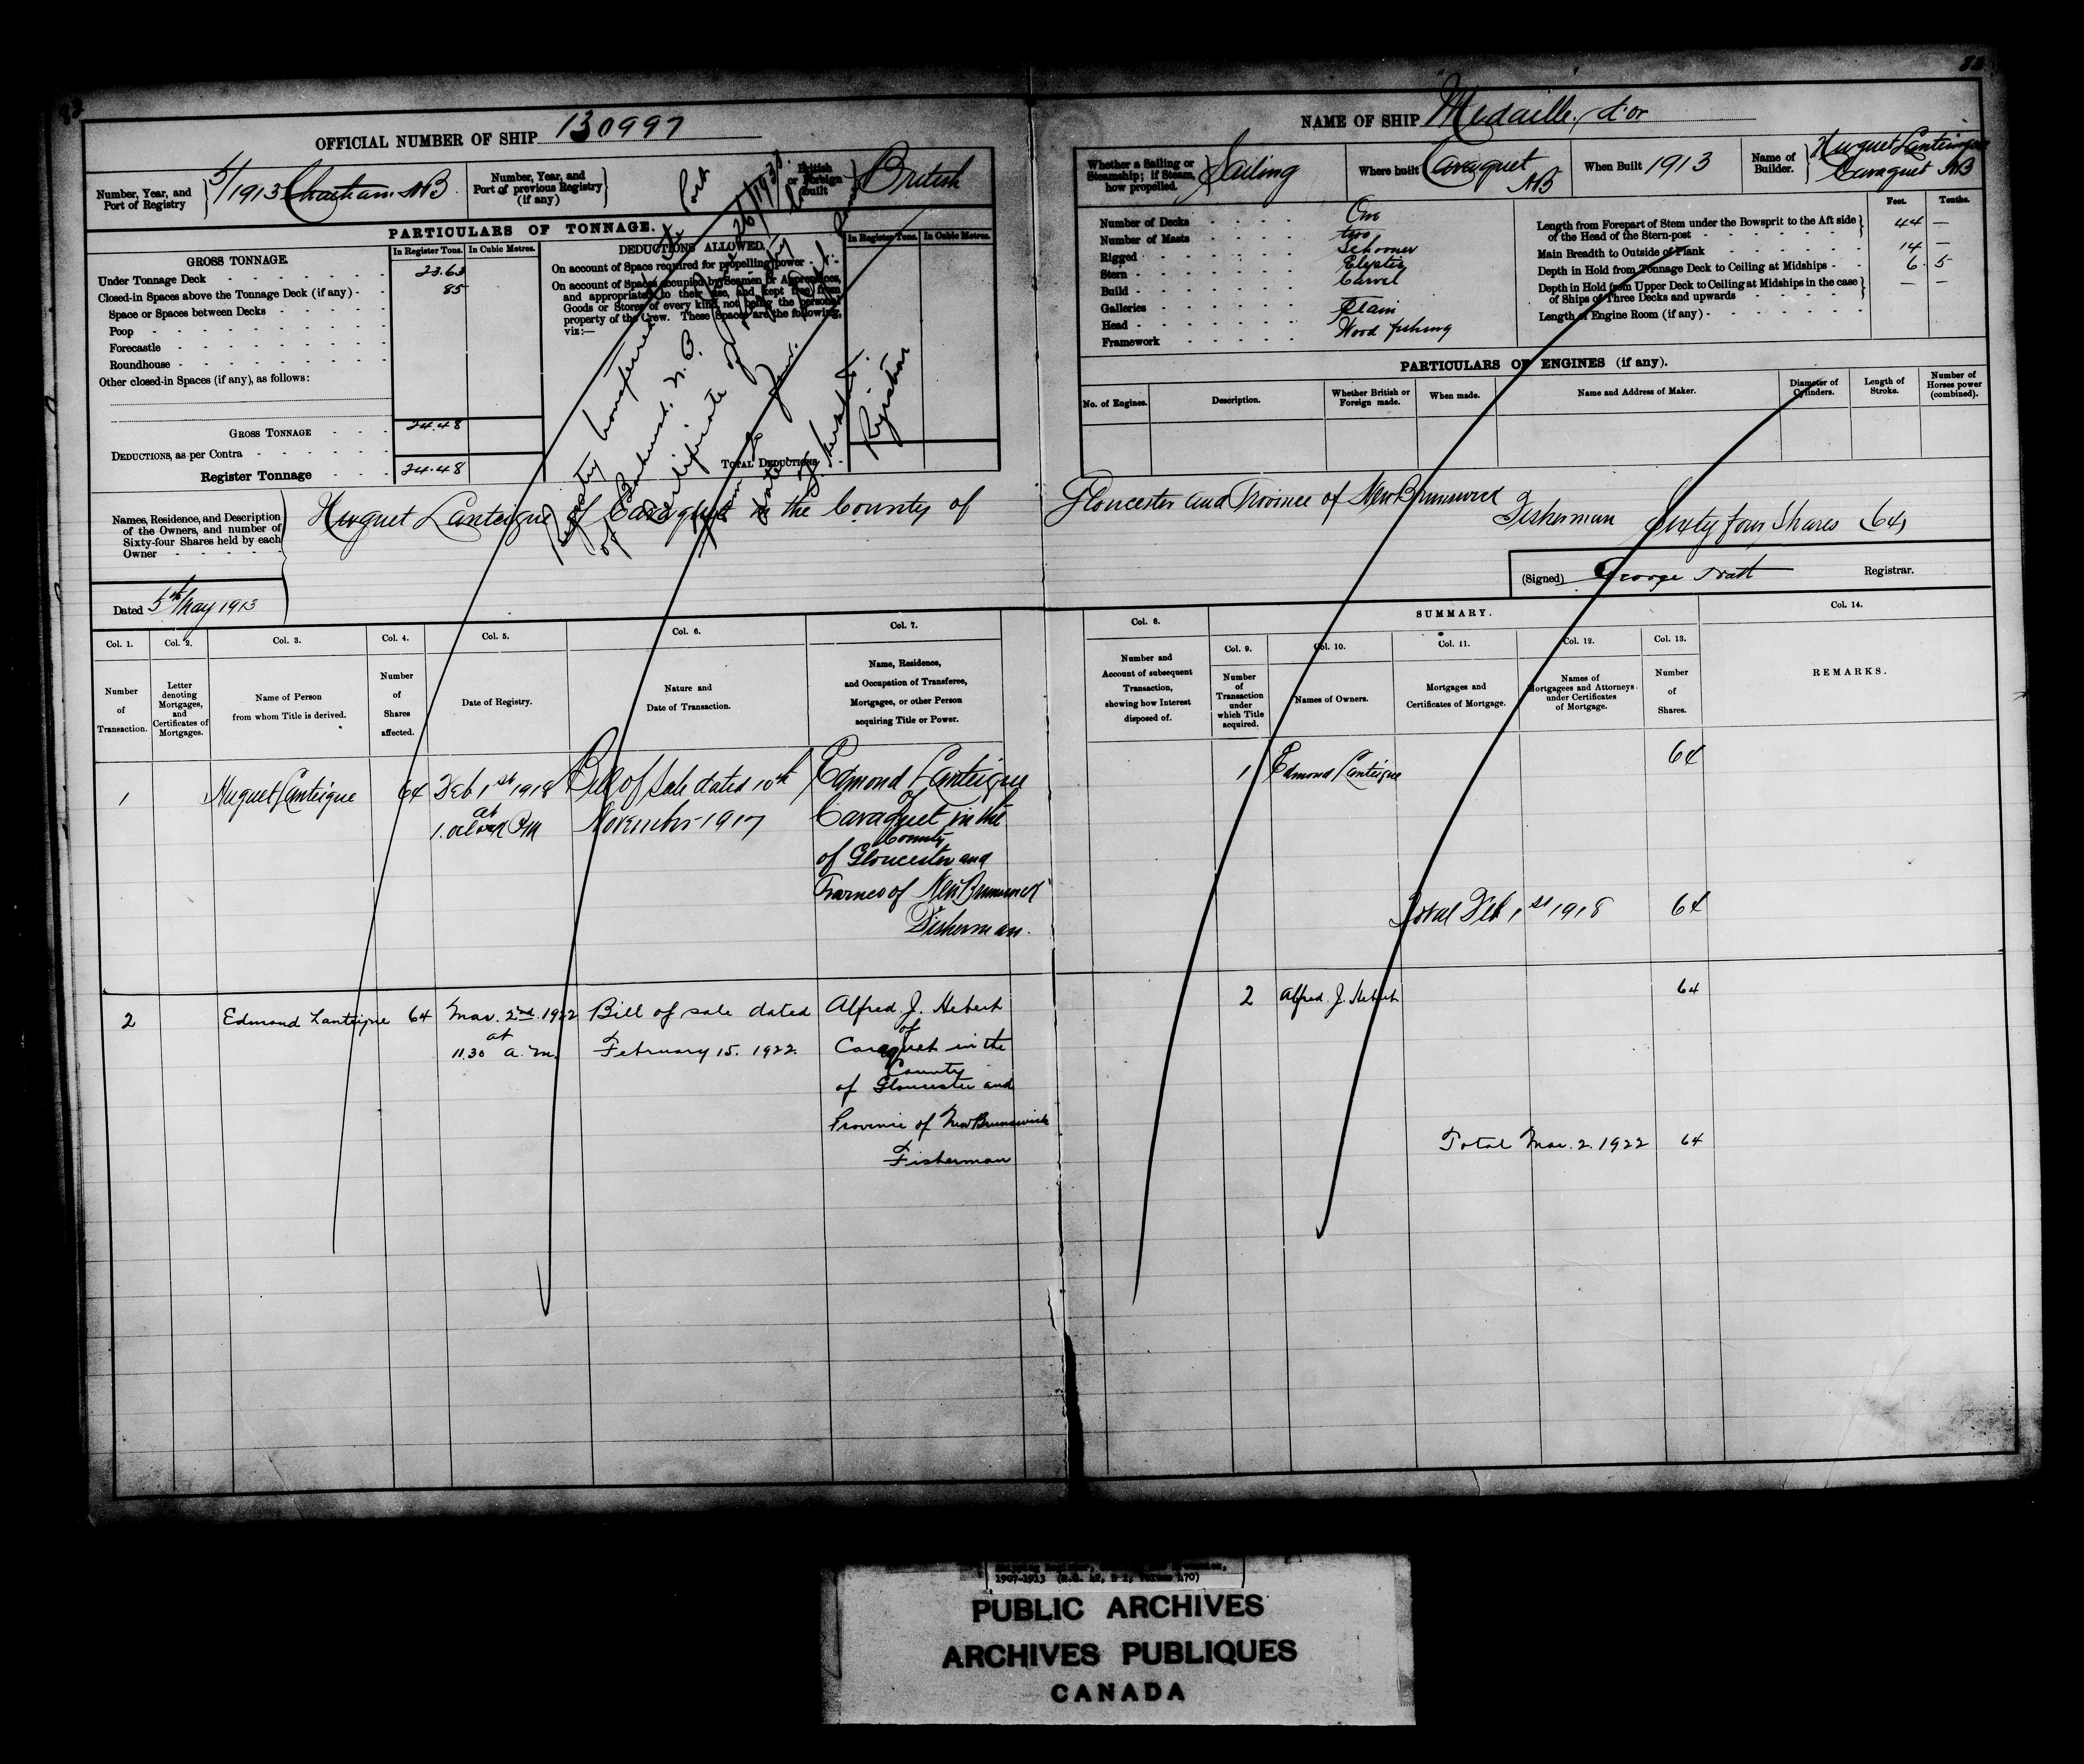 OFFICIAL NUMBER OF SHIP 130997
Number, Year, and
Port of Registry
5/1913 Chatham NB
Number, Year, and
Port of previous Registry
(if any)
British
or Foreign
Built
British
PARTICULARS OF TONNAGE.
GROSS TONNAGE.
In Register Tons. In Cubic Metres.
Under Tonnage Deck 23.63
Closed-in Spaces above the Tonnage Deck (if any) 85
Space or Spaces between Decks
Poop
Forecastle
Roundhouse
Other closed-in Spaces (if any), as follows:
GROSS TONNAGE 24.48
DEDUCTIONS, as per Contra
Register Tonnage 24.48
DEDUCTIONS ALLOWED.
In Register Tons. In Cubic Metres.
On account of Space required for propelling power
On account of Spaces occupied by Seamen or Apprentices,
and appropriated to their use, and kept free from
Goods or Stores of every kind, not being the personal
property of the Crew. These Spaces are the following,
viz:—
TOTAL DEDUCTIONS
Registry transferred to Port
of Bathurst. N. B.
Certificate of Registry
Registrar
Names, Residence, and Description
of the Owners, and number of
Sixty-four Shares held by each
Owner
Huguet Lanteigne of Caraquet in the County of
Dated 5th May 1913
Col. 1. Col. 2. Col. 3. Col. 4. Col. 5. Col. 6. Col. 7.
Number
of
Transaction.
Letter
denoting
Mortgages,
and
Certificates of
Mortgages.
Name of Person
from whom Title is derived.
Number
of
Shares
affected.
Date of Registry.
Nature and
Date of Transaction.
Name, Residence,
and Occupation of Transferee,
Mortgagee, or other Person
acquiring Title or Power.
1 Huguet Lanteigne 64 Feb 1st 1918 Bill of Sale dated 10th Edmond Lanteigne
at
of
1. oclock PM November 1917 Caraquet in the
County
of Gloucester and
of New Brunswick
Fisherman.
2 Edmond Lanteigne 64 Mar. 2nd. 1922 Bill of sale dated Alfred J. Hebert
at
of
11.30 a.m. February 15. 1922. Caraquet in the
County
of Gloucester and
Province of New Brunswick
Fisherman
NAME OF SHIP "Medaille d'or
Whether a Sailing or
Steamship; if Steam,
how propelled.
Sailing
Where built Caraquet
NB
When Built 1913
Name of
Builder.
Huguet Lanteigne
Caraquet NB
Number of Decks One
Number of Masts two
Rigged Schooner
Stern
Build Carvel
Galleries —
Head Plain
Framework Wood fishing
Feet. Tenths.
Length from Forepart of Stem under the Bowsprit to the Aft side
of the Head of the Stern-post 44 —
Main Breadth to Outside of Plank 14 —
Depth in Hold from Tonnage Deck to Ceiling at Midships 6. 5
Depth in Hold from Upper Deck to Ceiling at Midships in the case
of Ships of Three Decks and upwards — —
Length of Engine Room (if any)
PARTICULARS OF ENGINES (if any).
No. of Engines.
Description.
Whether British or
Foreign made.
When made.
Name and Address of Maker.
Diameter of
Cylinders.
Length of
Stroke.
Number of
Horses power
(combined).
Gloucester and Province of New Brunswick Fisherman Sixty four Shares (64)
(Signed) George Registrar.
Col. 8. SUMMARY. Col. 14.
Col. 9. Col. 10. Col. 11. Col. 12. Col. 13.
Number and
Account of subsequent
Transaction,
showing how Interest
disposed of.
Number
of
Transaction
under
which Title
acquired.
Names of Owners.
Mortgages and
Certificates of Mortgage.
Names of
Mortgagees and Attorneys
under Certificates
of Mortgage.
Number
of
Shares.
REMARKS.
1 Edmond Lanteigne 64
Total Feb 1st 1918 64
2 Alfred. J. Hebert 64
Total Mar. 2. 1922 64
PUBLIC ARCHIVES
ARCHIVES PUBLIQUES
CANADA